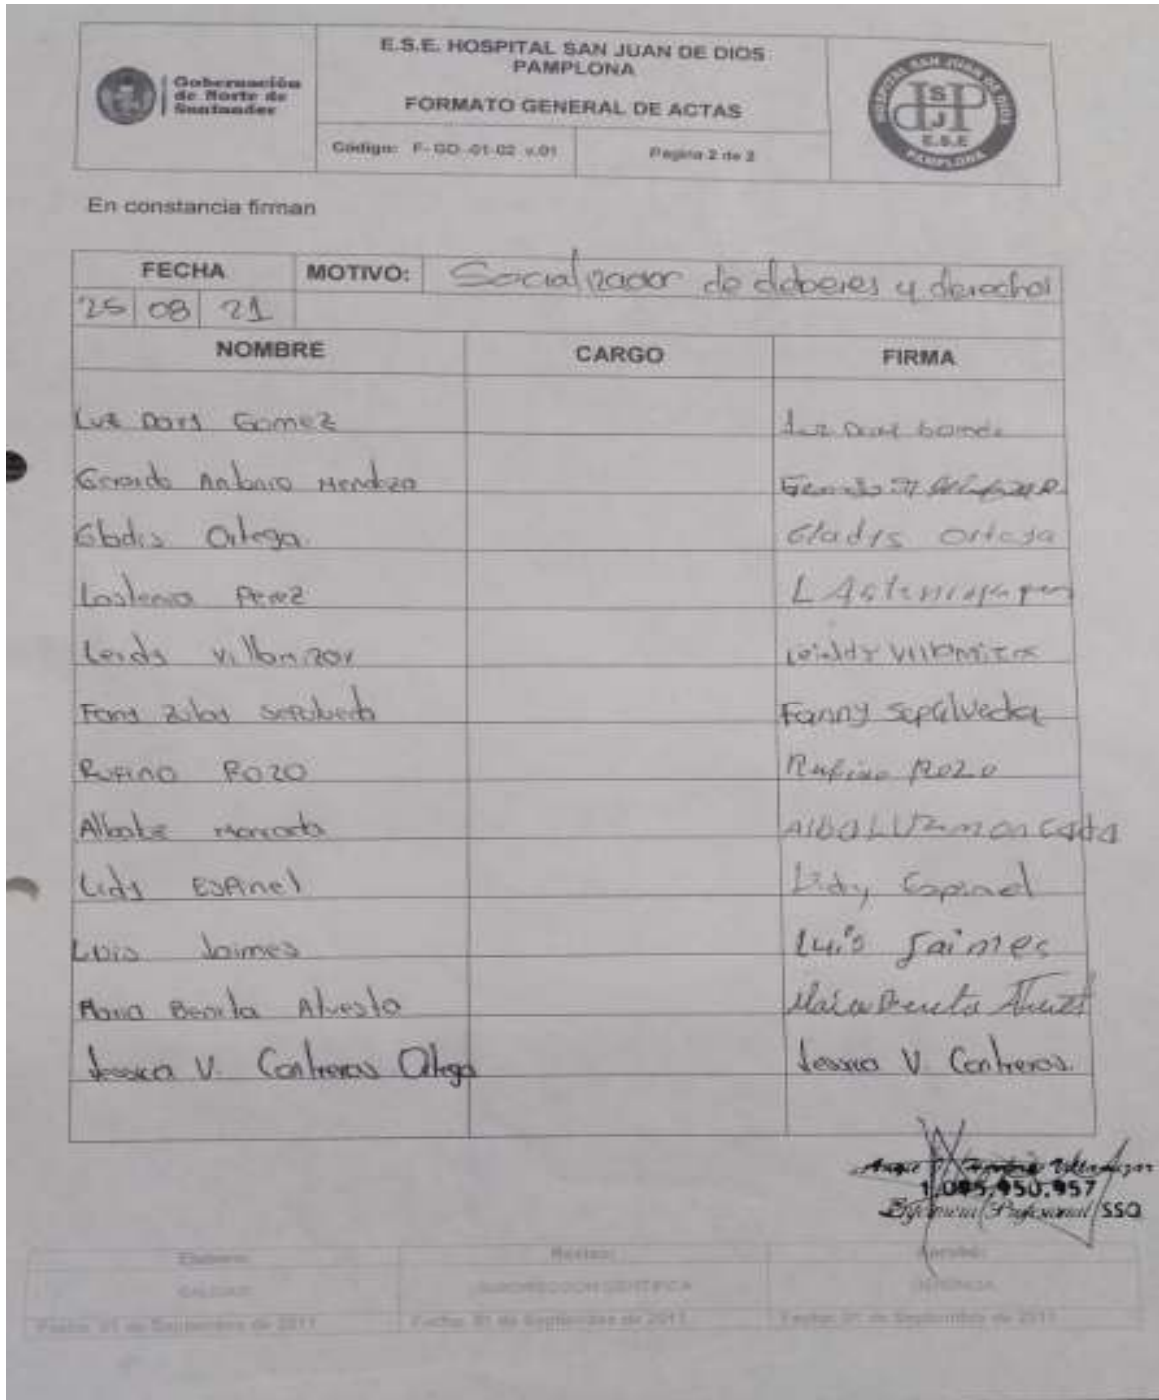 Gobernación
de Norte de
Santander
E.S.E. HOSPITAL SAN JUAN DE DIOS
PAMPLONA
FORMATO GENERAL DE ACTAS
Código: F-GD-01-02 v.01
Pagina 2 de 2
HOSPITAL SAN JUAN DE DIOS
SJ
E.S.E
PAMPLONA
En constancia firman
FECHA MOTIVO: de deberes y derechos
25 08 21
NOMBRE CARGO FIRMA
Luz Gomez Luz
Gerardo Antonio Mendoza
Gladis Ortega Gladys Ortega
Perez
Villamizar
Sepulveda Fanny Sepulveda
Rufino Rozo Rufino Rozo
Moncada Alba LUZ moncada
Leidy Espinel Espinel
Luis Jaimes Luis Jaimes
Maria Benita Maria
Jessica V. Contreras Ortega Jessica V. Contreras.
Villamizar
1.095.950.957
Profesional SSO
Elaboro: Reviso: Aprobó:
CALIDAD SUBDIRECCION CIENTIFICA GERENCIA
Fecha: 01 de Septiembre de 2011 Fecha: 01 de Septiembre de 2011 Fecha: 01 de Septiembre de 2011